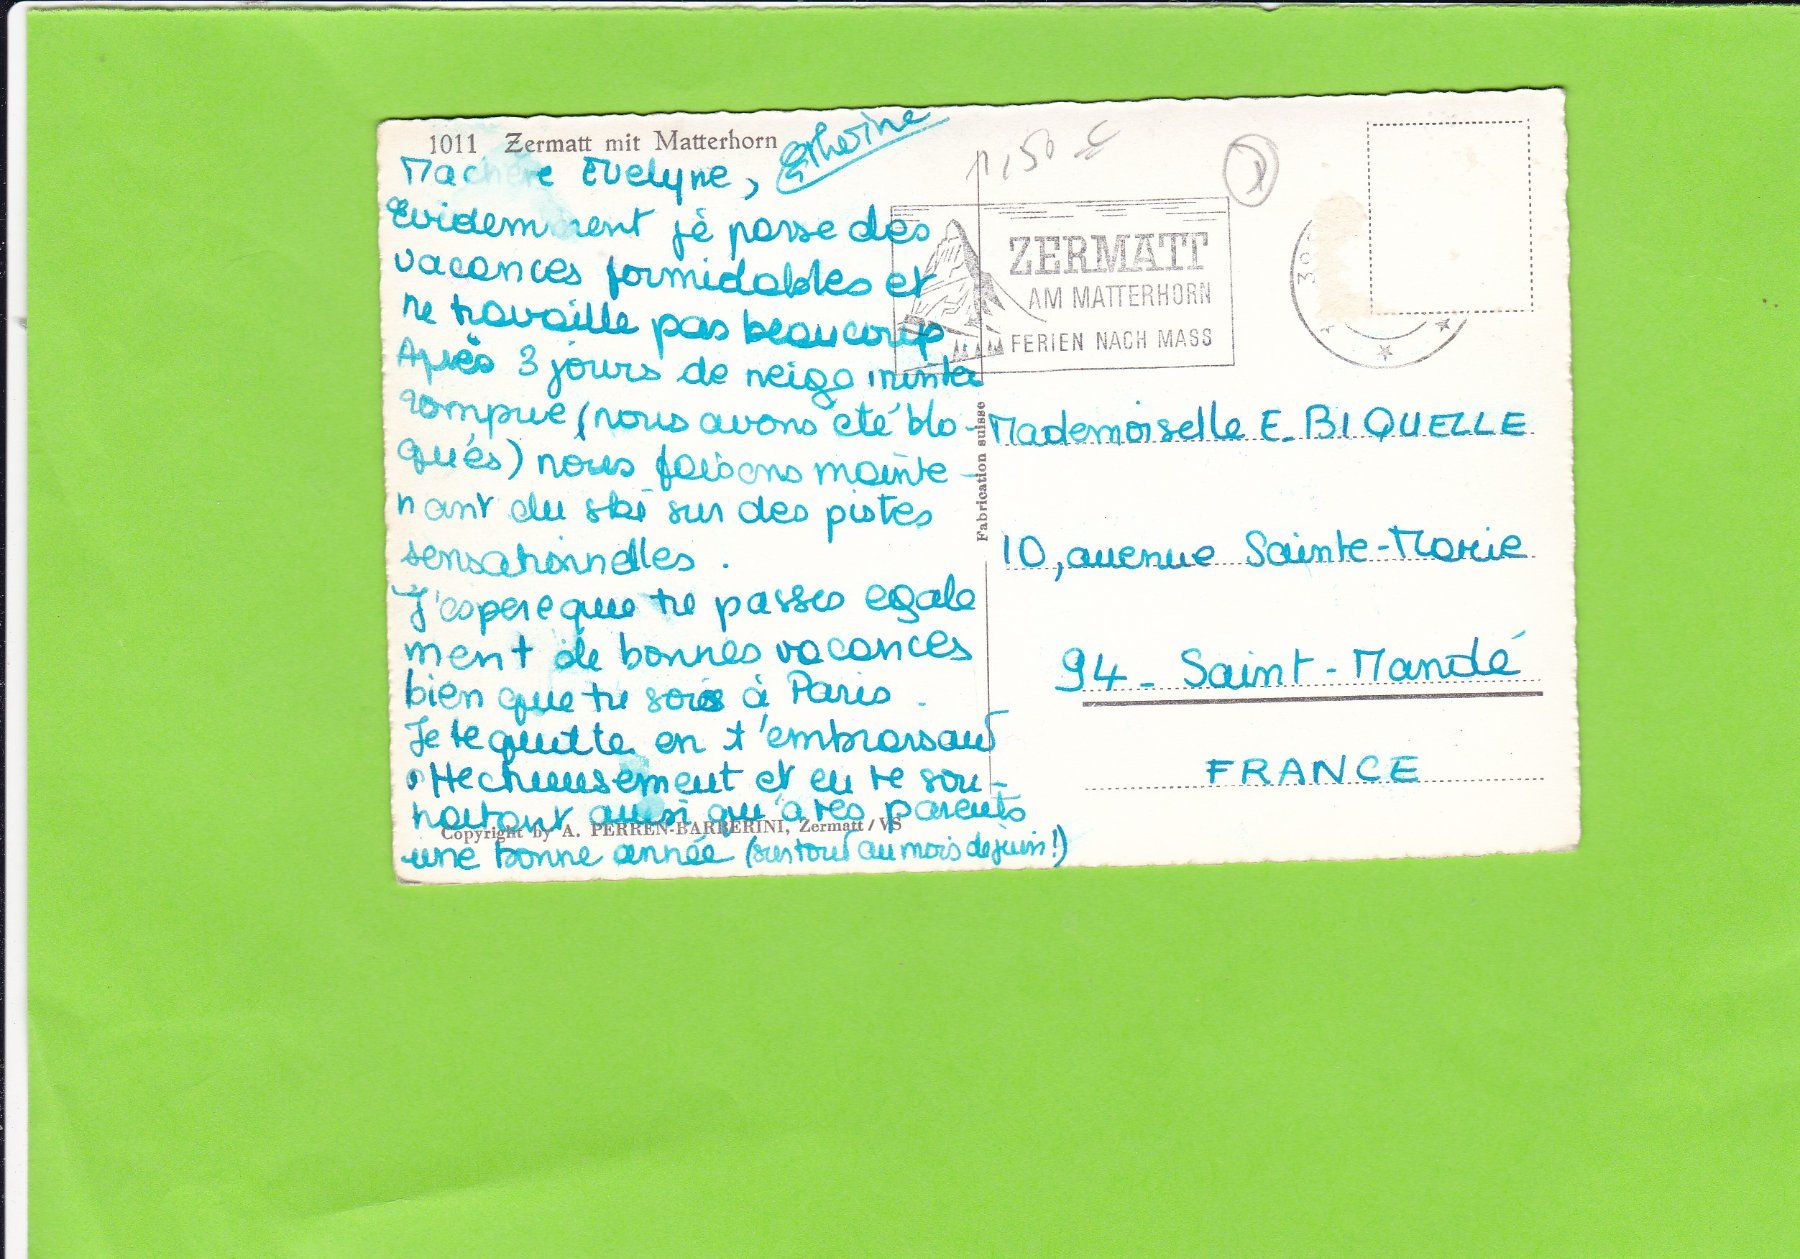 1011 Zermatt mit Matterhorn
Ma chère Evelyne,
Evidemment je passe des
vacances formidables et
ne travaille pas beaucoup
Après 3 jours de neige ininter
rompue (nous avons été blo-
qués) nous faisons mainte-
nant du ski sur des pistes
sensationnelles.
J'espere que tu passes egale
ment de bonnes vacances
bien que tu sois à Paris.
Je te quitte en t'embrassant
affectueusement et en te sou-
haitant ainsi qu'à tes parents
une bonne année (surtout au mois de juin!)
Copyright by A. PERREN-BARBERINI, Zermatt/VS
Fabrication suisse
1,50 €
ZERMATT
AM MATTERHORN
FERIEN NACH MASS
Mademoiselle E. BIQUELLE
10, avenue Sainte-Marie
94 - Saint-Mandé
FRANCE